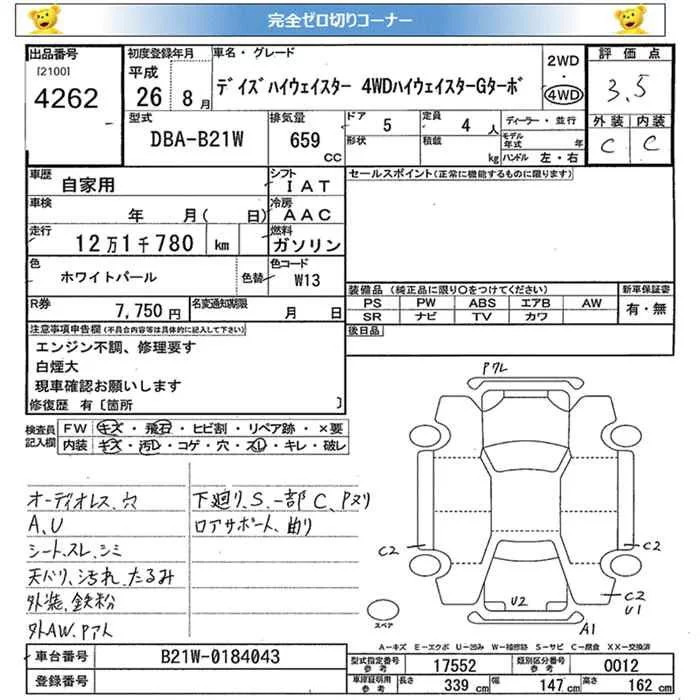 完全ゼロ切りコーナー
出品番号
[2100]
4262
初度登録年月
平成
26 8月
車名・グレード
デイズハイウェイスター 4WDハイウェイスターGターボ
2WD
・
4WD
評価点
3.5
外装 内装
C C
型式
DBA-B21W
排気量
659
CC
ドア
5
定員
4 人
形状
積載
kg
ディーラー・並行
モデル
年式 年
ハンドル 左・右
車歴
自家用
シフト
IAT
車検
年 月( 日)
冷房
AAC
走行
12万1千780 km
燃料
ガソリン
色
ホワイトパール
色替
色コード
W13
R券
7,750円
名変通知期限
月 日
セールスポイント(正常に機能するものに限ります)
装備品 (純正品に限り○をつけてください)
PS PW ABS エアB AW
SR ナビ TV カワ
新車保証書
有・無
後日品
注意事項申告欄(不具合内容等は具体的に記入して下さい)
エンジン不調、修理要す
白煙大
現車確認お願いします
修復歴 有〔箇所 〕
検査員
記入欄
FW キズ・飛石・ヒビ割・リペア跡・×要
内装 キズ・汚レ・コゲ・穴・スレ・キレ・破レ
オーディオレス、穴
A、U
シート、スレ、シミ
天バリ、汚れ、たるみ
外装、鉄粉
外AW、Pアト
下廻り、S、一部C、Pヌリ
ロアサポート、曲り
Pクレ
C2
C2
C2
U1
U2
A1
スペア
A-キズ E-エクボ U-凹み W-補修跡 S-サビ C-腐食 XX-交換済
車台番号
B21W-0184043
登録番号
型式指定番号
参考
17552
類別区分番号
参考
0012
車庫証明用
参考
長さ 339 cm
幅 147 cm
高さ 162 cm